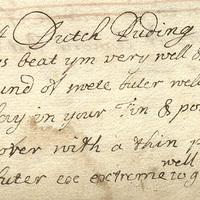 A Dutch Puding
s beat ym very well &
und of swete buter well
lay in your Tin & po
over with a thin p
well
buter eoc extreme w g